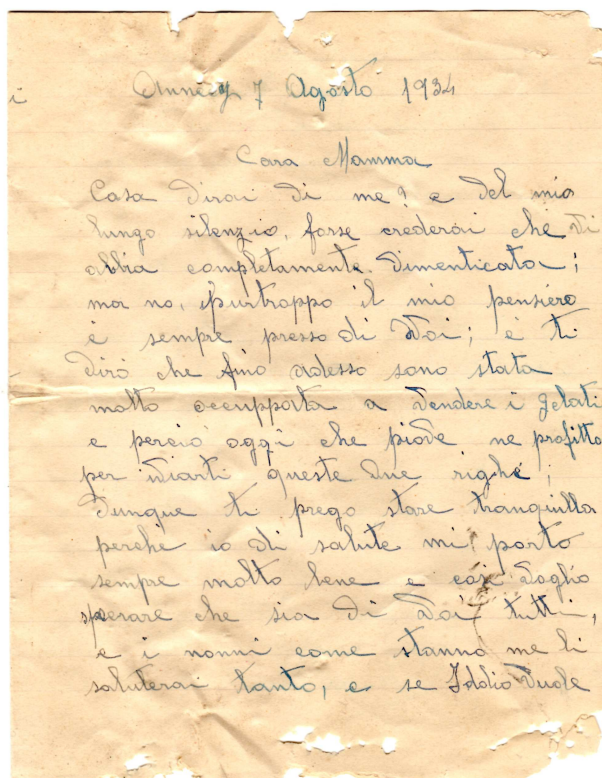 i
Annecy 7 Agosto 1934
Cara Mamma
Cosa dirai di me? e del mio
lungo silenzio, forse crederai che ti
abbia completamente dimenticata;
ma no, purtroppo il mio pensiero
è sempre presso di Voi; e ti
dirò che fino adesso sono stata
molto occupporta a vendere i gelati
e perciò oggi che piove ne profitto
per inviarti queste due righe;
Dunque ti prego stare tranquilla
perchè io di salute mi porto
sempre molto bene e così voglio
sperare che sia di Voi tutti,
e i nonni come stanno me li
saluterai tanto, e se Iddio vuole